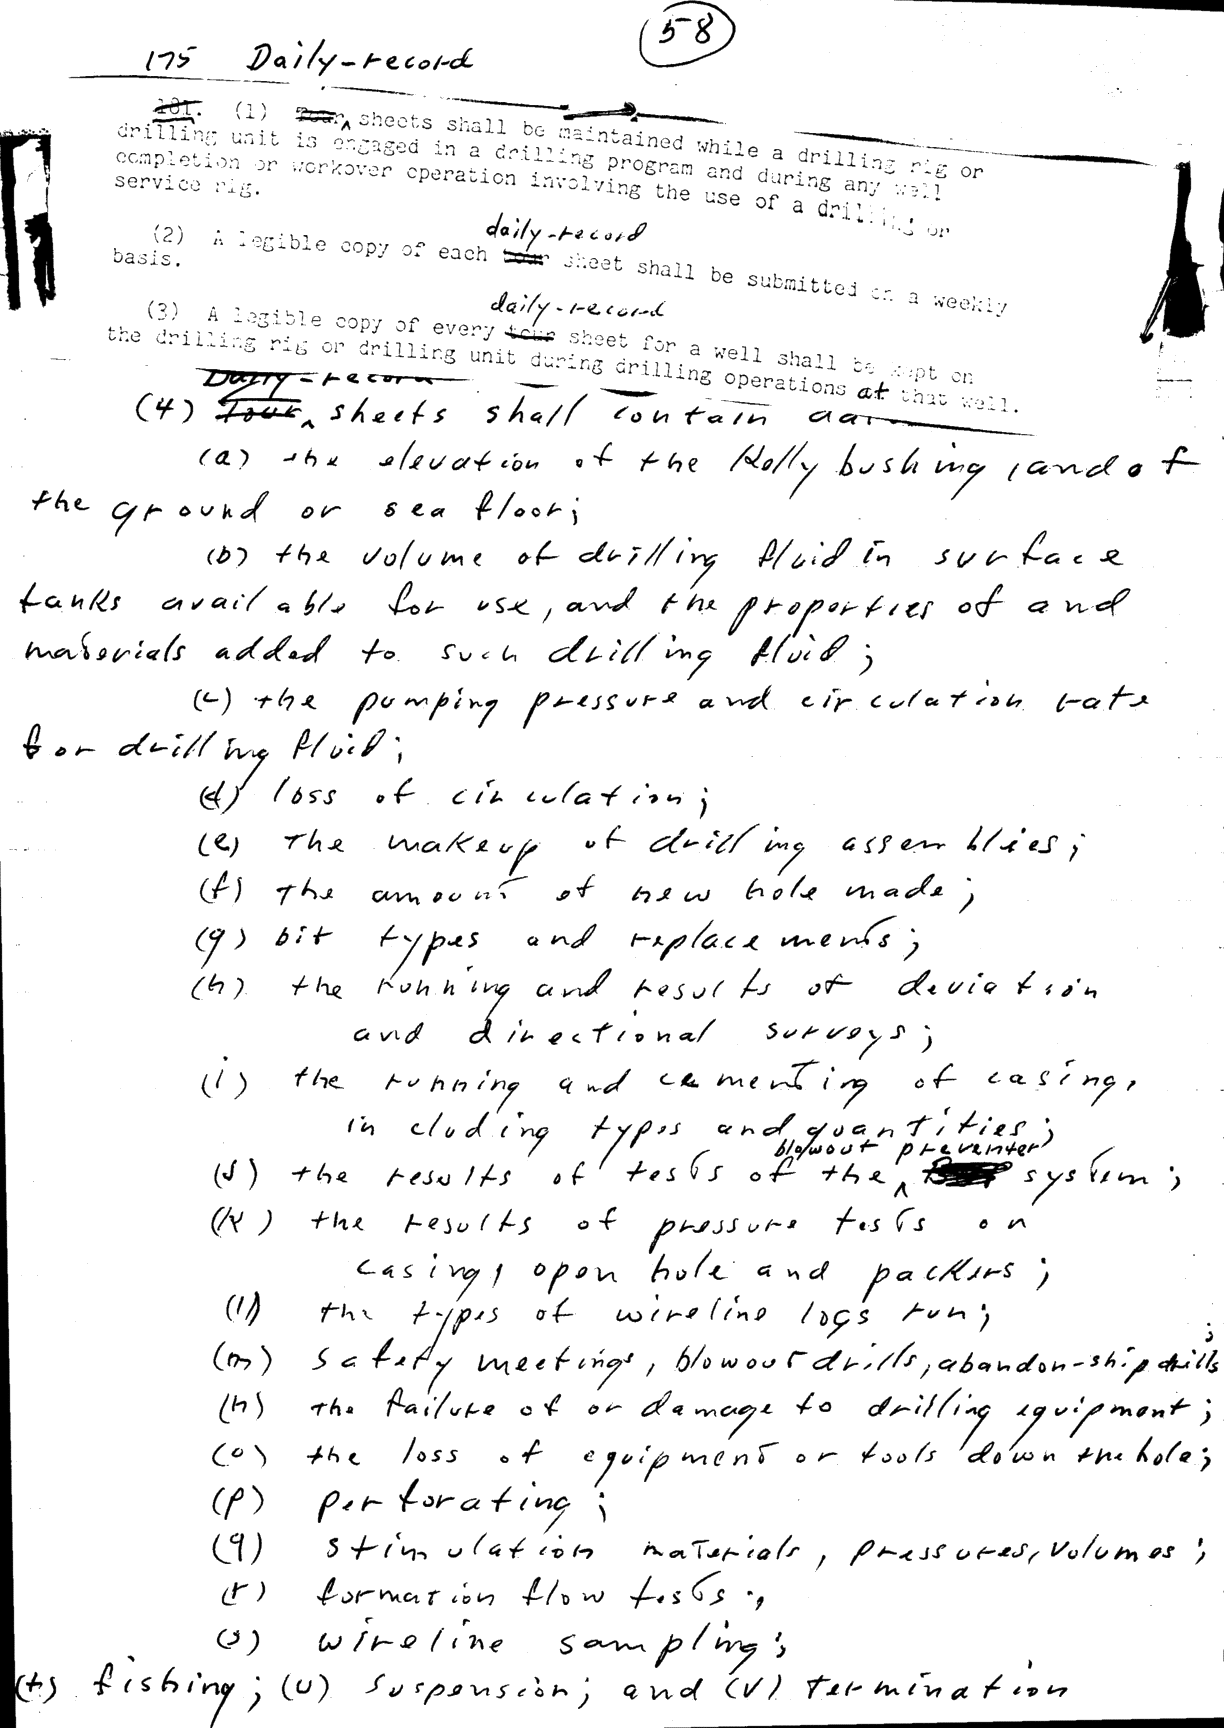 58
175 Daily-record
181. (1) Tour sheets shall be maintained while a drilling rig or
drilling unit is engaged in a drilling program and during any well
completion or workover operation involving the use of a drilling or
service rig.
daily-record
(2) A legible copy of each tour sheet shall be submitted on a weekly
basis.
daily-record
(3) A legible copy of every tour sheet for a well shall be kept on
the drilling rig or drilling unit during drilling operations at that well.
Daily-record
(4) tour sheets shall contain
(a) the elevation of the Kelly bushing, and of
the ground or sea floor;
(b) the volume of drilling fluid in surface
tanks available for use, and the properties of and
materials added to such drilling fluid;
(c) the pumping pressure and circulation rate
for drilling fluid;
(d) loss of circulation;
(e) the makeup of drilling assemblies;
(f) the amount of new hole made;
(g) bit types and replacements;
(h) the running and results of deviation
and directional surveys;
(i) the running and cementing of casing,
including types and quantities;
blowout preventer
(j) the results of tests of the system;
(k) the results of pressure tests on
casing, open hole and packers;
(l) the types of wireline logs run;
(m) safety meetings, blowout drills, abandon-ship drills;
(n) the failure of or damage to drilling equipment;
(o) the loss of equipment or tools down the hole;
(p) perforating;
(q) stimulation materials, pressures, volumes;
(r) formation flow tests;
(s) wireline sampling;
(t) fishing; (u) suspension; and (v) termination